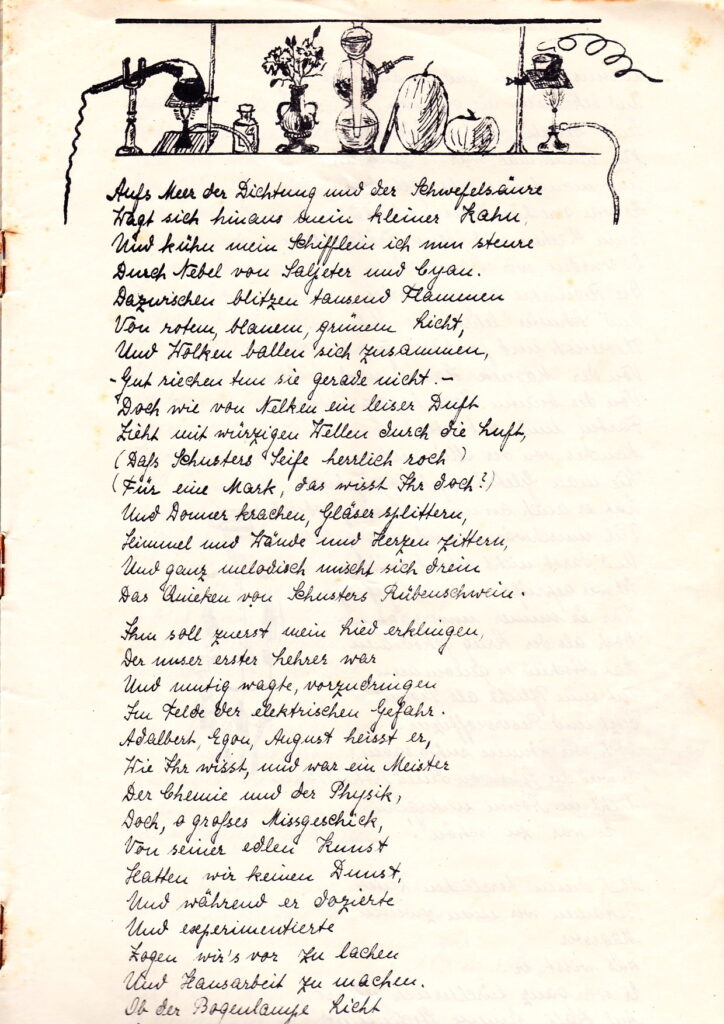 Aufs Meer der Dichtung und der Schwefelsäure
Wagt sich hinaus mein kleiner Kahn,
Und kühn mein Schifflein ich nun steure
Durch Nebel von Salpeter und Cyan.
Dazwischen blitzen tausend Flammen
Von rotem, blauem, grünem Licht,
Und Wolken ballen sich zusammen,
- Gut riechen tun sie gerade nicht. -
Doch wie von Nelken ein leiser Duft
Zieht mit würzigen Wellen durch die Luft,
(Daß Schusters Seife herrlich roch)
(Für eine Mark, das wisst Ihr doch?)
Und Donner krachen, Gläser splittern,
Himmel und Wände und Herzen zittern,
Und ganz melodisch mischt sich drein
Das Quieken von Schusters Rübenschwein.
Ihm soll zuerst mein Lied erklingen,
Der unser erster Lehrer war
Und mutig wagte, vorzudringen
Im Felde der elektrischen Gefahr.
Adalbert, Egon, August heisst er,
Wie Ihr wisst, und war ein Meister
Der Chemie und der Physik,
Doch, o großes Missgeschick,
Von seiner edlen Kunst
Hatten wir keinen Dunst,
Und während er dozierte
Und experimentierte
Zogen wir's vor zu lachen
Und Hausarbeit zu machen.
Ob der Bogenlampe Licht